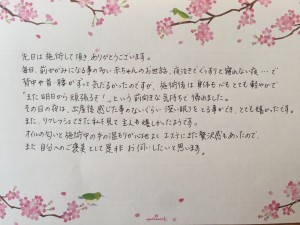 先日は施術して頂きありがとうございます。
毎日、前かがみになる事の多い赤ちゃんのお世話、夜泣きでぐっすりと寝れない夜…で
背中や首・腰がずっと気だるかったのですが、施術後は身体も心もとても軽やかで
"また明日から頑張ろう!"という前向きな気持ちで帰れました。
その日の夜は、出産後感じた事のないくらい深い眠りをとる事ができ、とても嬉しかったです。
また、リフレッシュできた私を見て主人も嬉しかったようです。
オイルの匂いと施術中の手の温もりが心地よくエステにまた贅沢感もあったので、
また自分へのご褒美として是非お伺いしたいと思います。
Hallmark